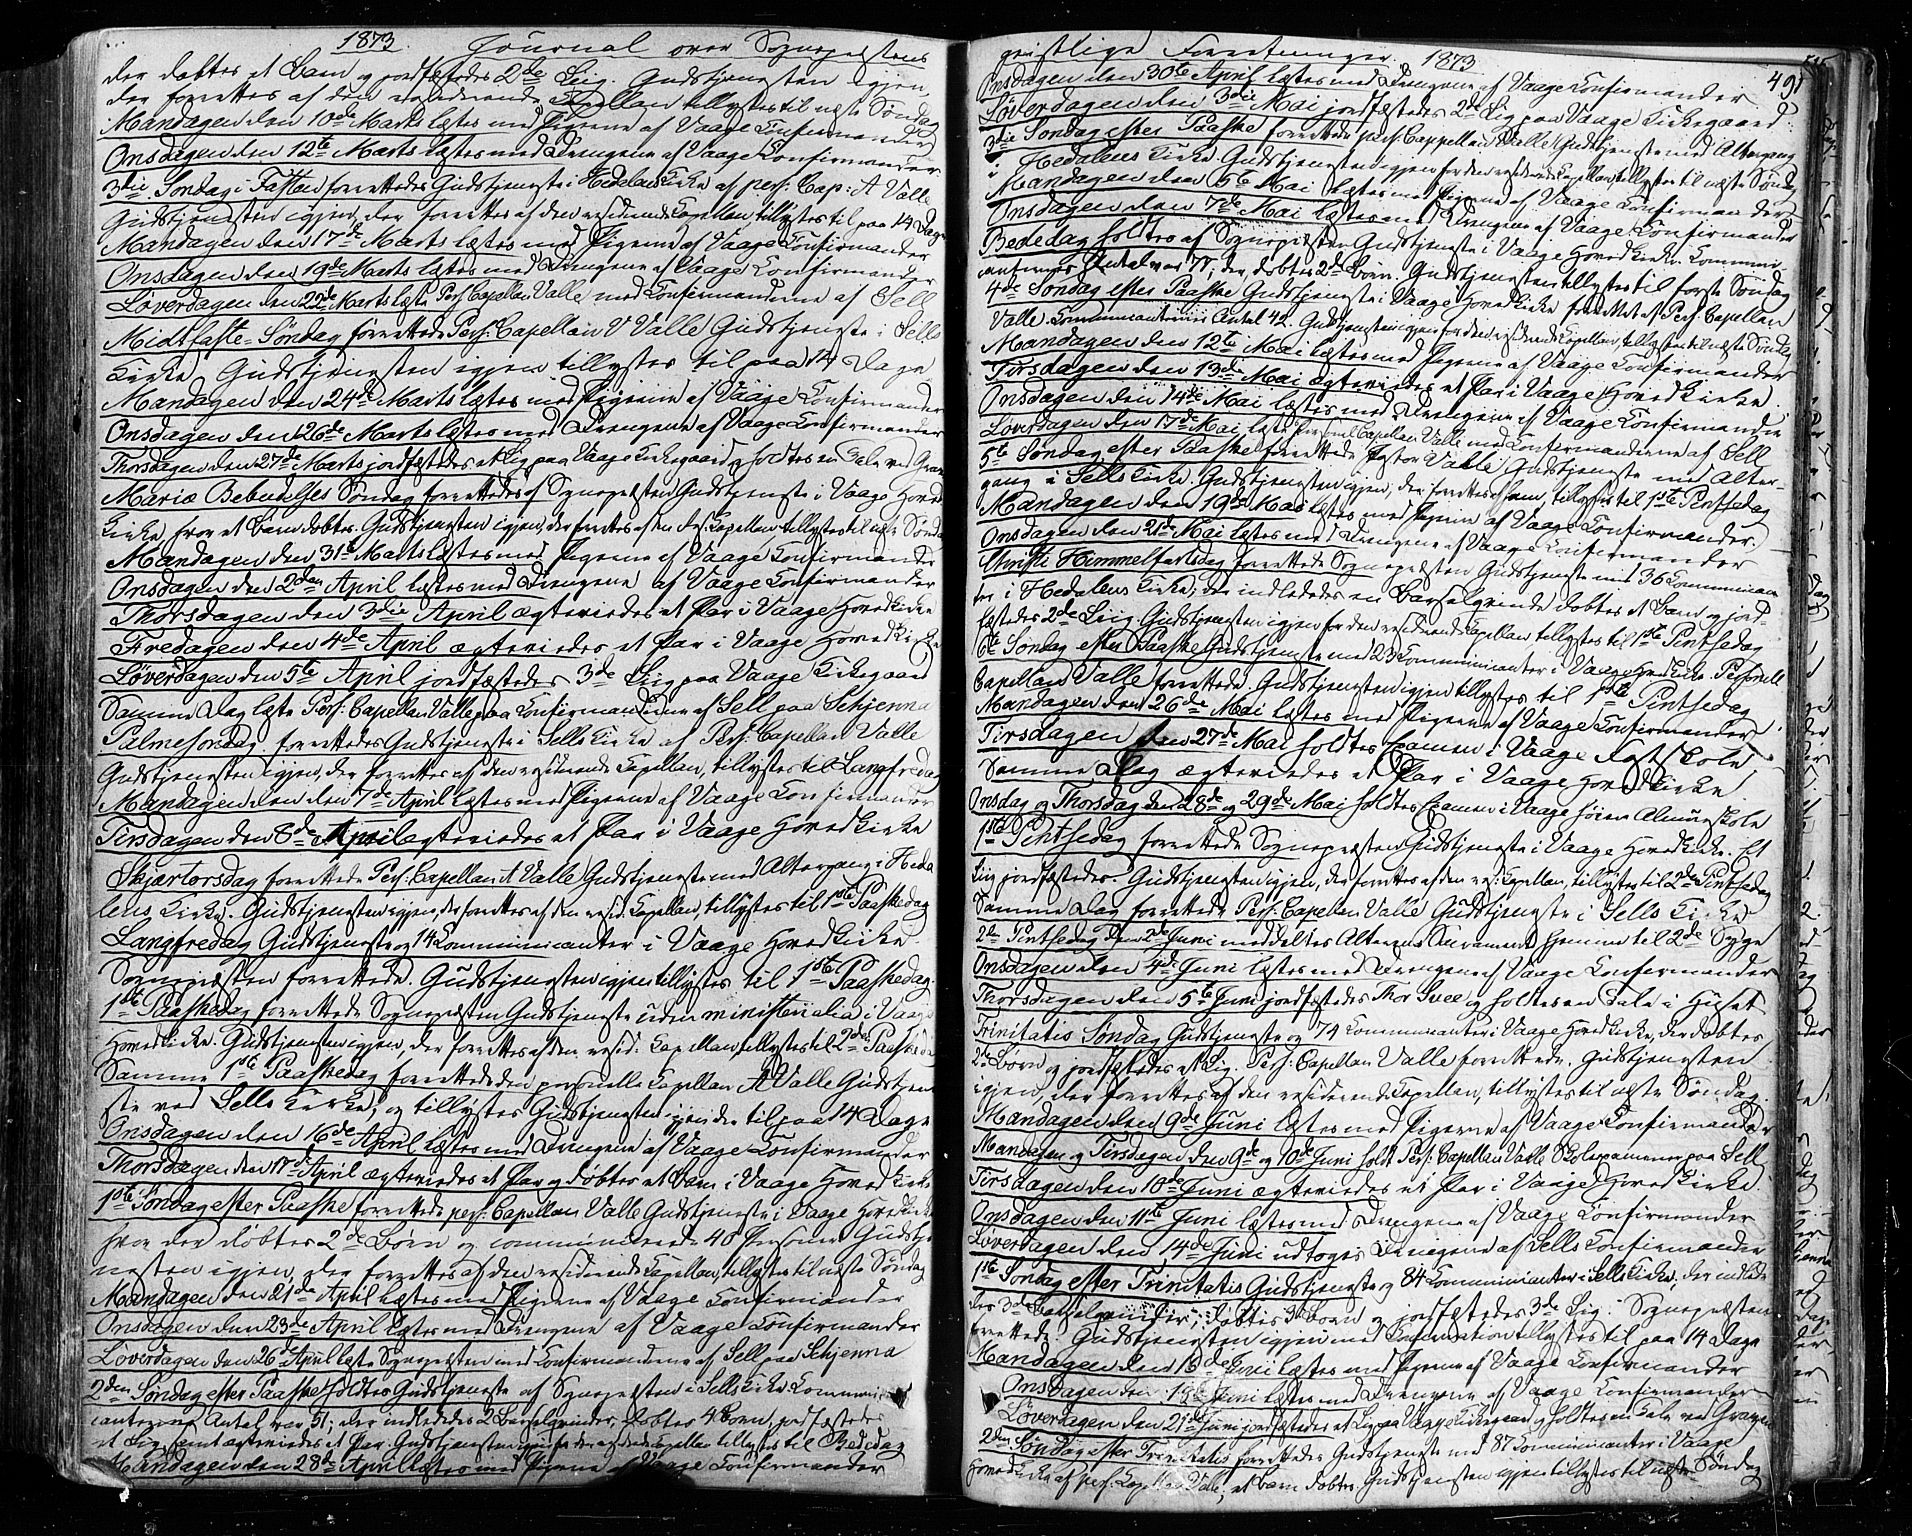 1873. Journal over Sognepræstens
der døbtes et Barn og jordfæstedes 2de Liig. Gudstjenesten igjen,
der forrettes af den residerende Capellan tillystes til næste Søndag
Mandagen den 10de Marts læstes med Pigerne af Vaage Confirmander
Onsdagen den 12te Marts læstes med Drengene af Vaage Confirmander
3die Søndag i Fasten forrettedes Gudstjeneste i Hedalens Kirke af pers: Cap: A Valle
Gudstjenesten igjen, der forrettes af den residerende Capellan, tillystes til paa 14 Dage
Mandagen den 17de Marts læstes med Pigerne af Vaage Confirmander
Onsdagen den 19de Marts læstes med Drengene af Vaage Confirmander
Løverdagen den 22de Marts læste Pers: Capellan Valle med Confirmanderne af Sell
Midtfaste-Søndag forrettede Pers: Capellan Valle Gudstjeneste i Sells
Kirke. Gudstjenesten igjen tillystes til paa 14 Dage
Mandagen den 24de Marts læstes med Pigerne af Vaage Confirmander
Onsdagen den 26de Marts læstes med Drengene af Vaage Confirmander
Thorsdagen den 27de Marts jordfæstedes et Liig paa Vaage Kirkegaard og holdtes en Tale ved Graven
Mariæ Bebudelses Søndag forrettedes af Sognepræsten Gudstjeneste i Vaage Hoved
Kirke, hvor et Barn døbtes. Gudstjenesten igjen, der forrettes af den res: Capellan, tillystes til næste Søndag
Mandagen den 31te Marts læstes med Pigerne af Vaage Confirmander
Onsdagen den 2den April læstes med Drengene af Vaage Confirmander
Thorsdagen den 3die April ægteviedes et Par i Vaage Hoved Kirke
Fredagen den 4de April ægteviedes et Par i Vaage Hoved Kirke
Løverdagen den 5te April jordfæstedes 3de Liig paa Vaage Kirkegaard
Samme Dag læste Pers: Capellan Valle paa Confirmanderne af Sell paa Schjenna
Palmesøndag forrettedes Gudstjeneste i Sells Kirke af Pers: Capellan Valle
Gudstjenesten igjen, der forrettes af den residerende Capellan, tillystes til Langfredag
Mandagen den 7de April læstes med Pigerne af Vaage Confirmander
Tirsdagen den 8de April ægteviedes et Par i Vaage Hoved Kirke
Skjærtorsdag forrettede Pers: Capellan A Valle Gudstjeneste med Altergang i Heda
lens Kirke. Gudstjenesten igjen, der forrettes af den resid. Capellan, tillystes til 1ste Paaskedag
Langfredag Gudstjeneste og 14 Communicanter i Vaage Hoved Kirke.
Sognepræsten forrettede. Gudstjenesten igjen tillystes til 1ste Paaskedag.
1ste Paaskedag forrettede Sognepræsten Gudstjeneste uden ministerialia i Vaage
Hoved Kirke. Gudstjenesten igjen, der forrettes af den resid. Capellan, tillystes til 2den Paaskedag
Samme 1ste Paaskedag forrettede den personelle Capellan A Valle Gudstjene
ste ved Sells Kirke, og tillystes Gudstjenesten igjen der til paa 14 Dage
Onsdagen den 16de April læstes med Drengene af Vaage Confirmander
Thorsdagen den 17de April ægteviedes et Par og døbtes et Barn i Vaage Hoved Kirke
1ste Søndag efter Paaske forrettede pers: Capellan Valle Gudstjeneste i Vaage Hoved Kirke
hvor der døbtes 2de Børn og communicerede 40 Personer Gudstje
nesten igjen, der forrettes af den residerende Capellan, tillystes til næste Søndag
Mandagen den 21de April læstes med Pigerne af Vaage Confirmander
Onsdagen den 23de April læstes med Drengene af Vaage Confirmander
Løverdagen den 26de April læste Sognepræsten med Confirmanderne af Sell paa Schjenna
2den Søndag efter Paaske holdtes Gudstjeneste af Sognepræsten i Sells Kirke Communi
canternes Antal var 51; der indlededes 2 Barselqvinder, døbtes 4 Børn, jordfæstedes
et Liig, samt ægteviedes et Par. Gudstjenesten igjen for den residerende Capellan tillystes til Bededag
Mandagen den 28de April læstes med Pigerne af Vaage Confirmander
geistlige Forretninger 1873
491
Onsdagen den 30te April læstes med Drengene af Vaage Confirmander
Løverdagen den 3die Mai jordfæstedes 2de Liig paa Vaage Kirkegaard
3die Søndag efter Paaske forrettede pers: Cappellan Valle Gudstjeneste med Altergang
i Hedalens Kirke. Gudstjenesten igjen for den residerende Capellan, tillystes til næste Søndag
Mandagen den 5te Mai læstes med Pigerne af Vaage Confirmander
Onsdagen den 7de Mai læstes med Drengene af Vaage Confirmander
Bededag holdtes af Sognepræsten Gudstjeneste i Vaage Hoved Kirke. Communi
canternes Antal var 77; der døbtes 2de Børn. Gudstjenesten tillystes til første Søndag
4de Søndag efter Paaske Gudstjeneste i Vaage Hoved Kirke forrettet af Pers: Capellan
Valle. Communicanternes Antal 42. Gudstjenesten igjen for den residerende Capellan, tillystes til næste Søndag
Mandagen den 12te Mai læstes med Pigerne af Vaage Confirmander
Tirsdagen den 13de Mai ægteviedes et Par i Vaage Hoved Kirke
Onsdagen den 14de Mai læstes med Drengene af Vaage Confirmander
Løverdagen den 17de Mai læste Personel Capellan Valle med Confirmanderne af Sell
5te Søndag efter Paaske forrettede Pastor Valle Gudstjeneste med Alter-
gang i Sells Kirke. Gudstjenesten igjen, der forrettes af ham, tillystes til 1ste Pintsedag
Mandagen den 19de Mai læstes med Pigerne af Vaage Confirmander
Onsdagen den 21de Mai læstes med Drengene af Vaage Confirmander.
Christi Himmelfartsdag forrettede Sognepræsten Gudstjeneste med 36 Communican
ter i Hedalens Kirke; der indlededes en Barselqvinde døbtes et Barn og jord-
fæstedes 2de Liig. Gudstjenesten igjen for den residerende Capellan tillystes til 1ste Pintsedag
6te Søndag efter Paaske Gudstjeneste med 23 Communicanter i Vaage Hoved Kirke. Personell
Capellan Valle forrettede. Gudstjenesten igjen tillystes til 1ste Pintsedag
Mandagen den 26de Mai læstes med Pigerne af Vaage Confirmander
Tirsdagen den 27de Mai holdtes Examen i Vaage Fastskole
Samme Dag ægteviedes et Par i Vaage Hoved Kirke
Onsdag og Thorsdag den 28de og 29de Mai holdtes Examen i Vaage høiere Almueskole
1ste Pintsedag forrettede Sognepræsten Gudstjeneste i Vaage Hoved Kirke. Et
Liig jordfæstedes. Gudstjenesten igjen, der forrettes af den res: Capellan, tillystes til 2den Pintsedag
Samme Dag forrettede Pers: Capellan Valle Gudstjeneste i Sells Kirke
2den Pintsedag den 2den Juni meddeltes Alterens Sacrament hjemme til 2de Syge
Onsdagen den 4de Juni læstes med Drengene af Vaage Confirmander
Thorsdagen den 5te Juni jordfæstedes Thor Svee og holdtes en Tale i Huset
Trinitatis Søndag Gudstjeneste og 74 Communicanter i Vaage Hoved Kirke, der døbtes
2de Børn og jordfæstedes et Liig. Pers: Capellan Valle forrettede. Gudstjenesten
igjen, der forrettes af den residerende Capellan, tillystes til næste Søndag.
Mandagen den 9de Juni læstes med Pigerne af Vaage Confirmander
Mandagen og Tirsdagen den 9de og 10de Juni holdt Pers: Capellan Valle Skoleexamener paa Sell
Tirsdagen den 10de Juni ægteviedes et Par i Vaage Hoved Kirke.
Onsdagen den 11te Juni læstes med Drengene af Vaage Confirmander
Løverdagen den 14de Juni udtoges Drengene af Sells Confirmander
1ste Søndag efter Trinitatis Gudstjeneste og 84 Communicanter i Sells Kirke, der indlede
des 3de Barselqvinder, døbtes 3de Børn og jordfæstedes 3de Liig. Sognepræsten
forrettede. Gudstjenesten igjen med Confirmation tillystes til paa 14 Dage
Mandagen den 16de Juni læstes med Pigerne af Vaage Confirmander
Onsdagen den 18de Juni læstes med Drengene af Vaage Confirmander
Løverdagen den 21de Juni jordfæstedes et Liig paa Vaage Kirkegaard og holdtes en Tale ved Graven
2den Søndag efter Trinitatis forrettedes Gudstjeneste med 87 Communicanter i Vaage
Hoved Kirke af pers: Capellan Valle, et Barn døbtes. Gudstjenesten igjen tillystes til næste Søndag